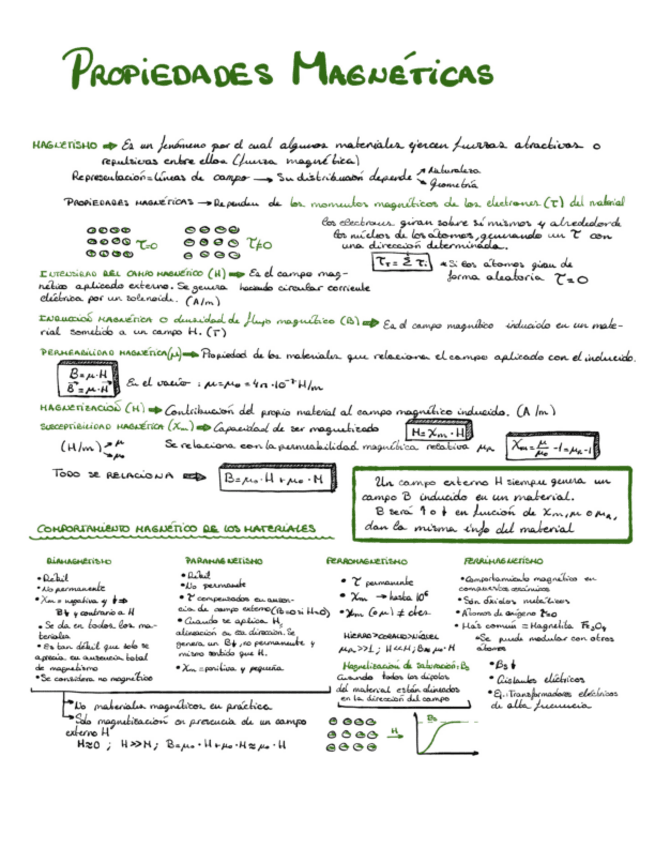 PROPIEDADES MAGNÉTICAS
MAGNETISMO → Es un fenómeno por el cual algunos materiales ejercen fuerzas atractivas o
repulsivas entre ellos (fuerza magnética)
Representación = Líneas de campo → Su distribución depende → Naturaleza
→ Geometría
PROPIEDADES MAGNÉTICAS → Dependen de los momentos magnéticos de los electrones (τ) del material
los electrones giran sobre sí mismos y alrededor de
los núcleos de los átomos, generando un τ con
una dirección determinada.
τ=0 τ≠0
τT = Σ τi * Si los átomos giran de
forma aleatoria τ=0
INTENSIDAD DEL CAMPO MAGNÉTICO (H) → Es el campo mag-
nético aplicado externo. Se genera haciendo circular corriente
eléctrica por un solenoide. (A/m)
INDUCCIÓN MAGNÉTICA O densidad de flujo magnético (B) → Es el campo magnético inducido en un mate-
rial sometido a un campo H. (T)
PERMEABILIDAD MAGNÉTICA (μ) → Propiedad de los materiales que relaciona el campo aplicado con el inducido.
B = μ·H
B = μ·H
En el vacío : μ = μ₀ = 4π·10⁻⁷ H/m
MAGNETIZACIÓN (M) → Contribución del propio material al campo magnético inducido. (A/m)
SUSCEPTIBILIDAD MAGNÉTICA (Xm) → Capacidad de ser magnetizado M = Xm · H
(H/m) → μ
→ μ₀
Se relaciona con la permeabilidad magnética relativa μR Xm = μ/μ₀ - 1 = μR - 1
TODO SE RELACIONA → B = μ₀·H + μ₀·M
Un campo externo H siempre genera un
campo B inducido en un material.
B será ↑ o ↓ en función de Xm, μ o μR,
dan la misma info del material
COMPORTAMIENTO MAGNÉTICO DE LOS MATERIALES
DIAMAGNETISMO
• Débil
• No permanente
• Xm = negativa y ↓ ⇒
B↓ y contrario a H
• Se da en todos los ma-
teriales
• Es tan débil que solo se
aprecia en ausencia total
de magnetismo
• Se considera no magnético
PARAMAGNETISMO
• Débil
• No permanente
• τ compensados en ausen-
cia de campo externo (B=0 si H=0)
• Cuando se aplica H,
alineación en esa dirección. Se
genera un B↓, no permanente y
mismo sentido que H.
• Xm = positiva y pequeña
No materiales magnéticos en práctica
Solo magnetización en presencia de un campo
externo H
M≈0 ; H>>M ; B=μ₀·H+μ₀·M≈μ₀·H
FERROMAGNETISMO
• τ permanente
• Xm → hasta 10⁶
• Xm (o μ) ≠ ctes.
HIERRO>COBALTO>NÍQUEL
μR>>1 ; H<<M ; B≈μ₀·M
Magnetización de saturación: Bs
Cuando todos los dipolos
del material están alineados
en la dirección del campo
H
Bs
FERRIMAGNETISMO
• Comportamiento magnético en
compuestos cerámicos
• Son óxidos metálicos
• Átomos de oxígeno τ=0
• Más común = Magnetita Fe₃O₄
• Se puede modular con otros
átomos
• Bs↓
• Aislantes eléctricos
• Ej: Transformadores eléctricos
de alta frecuencia